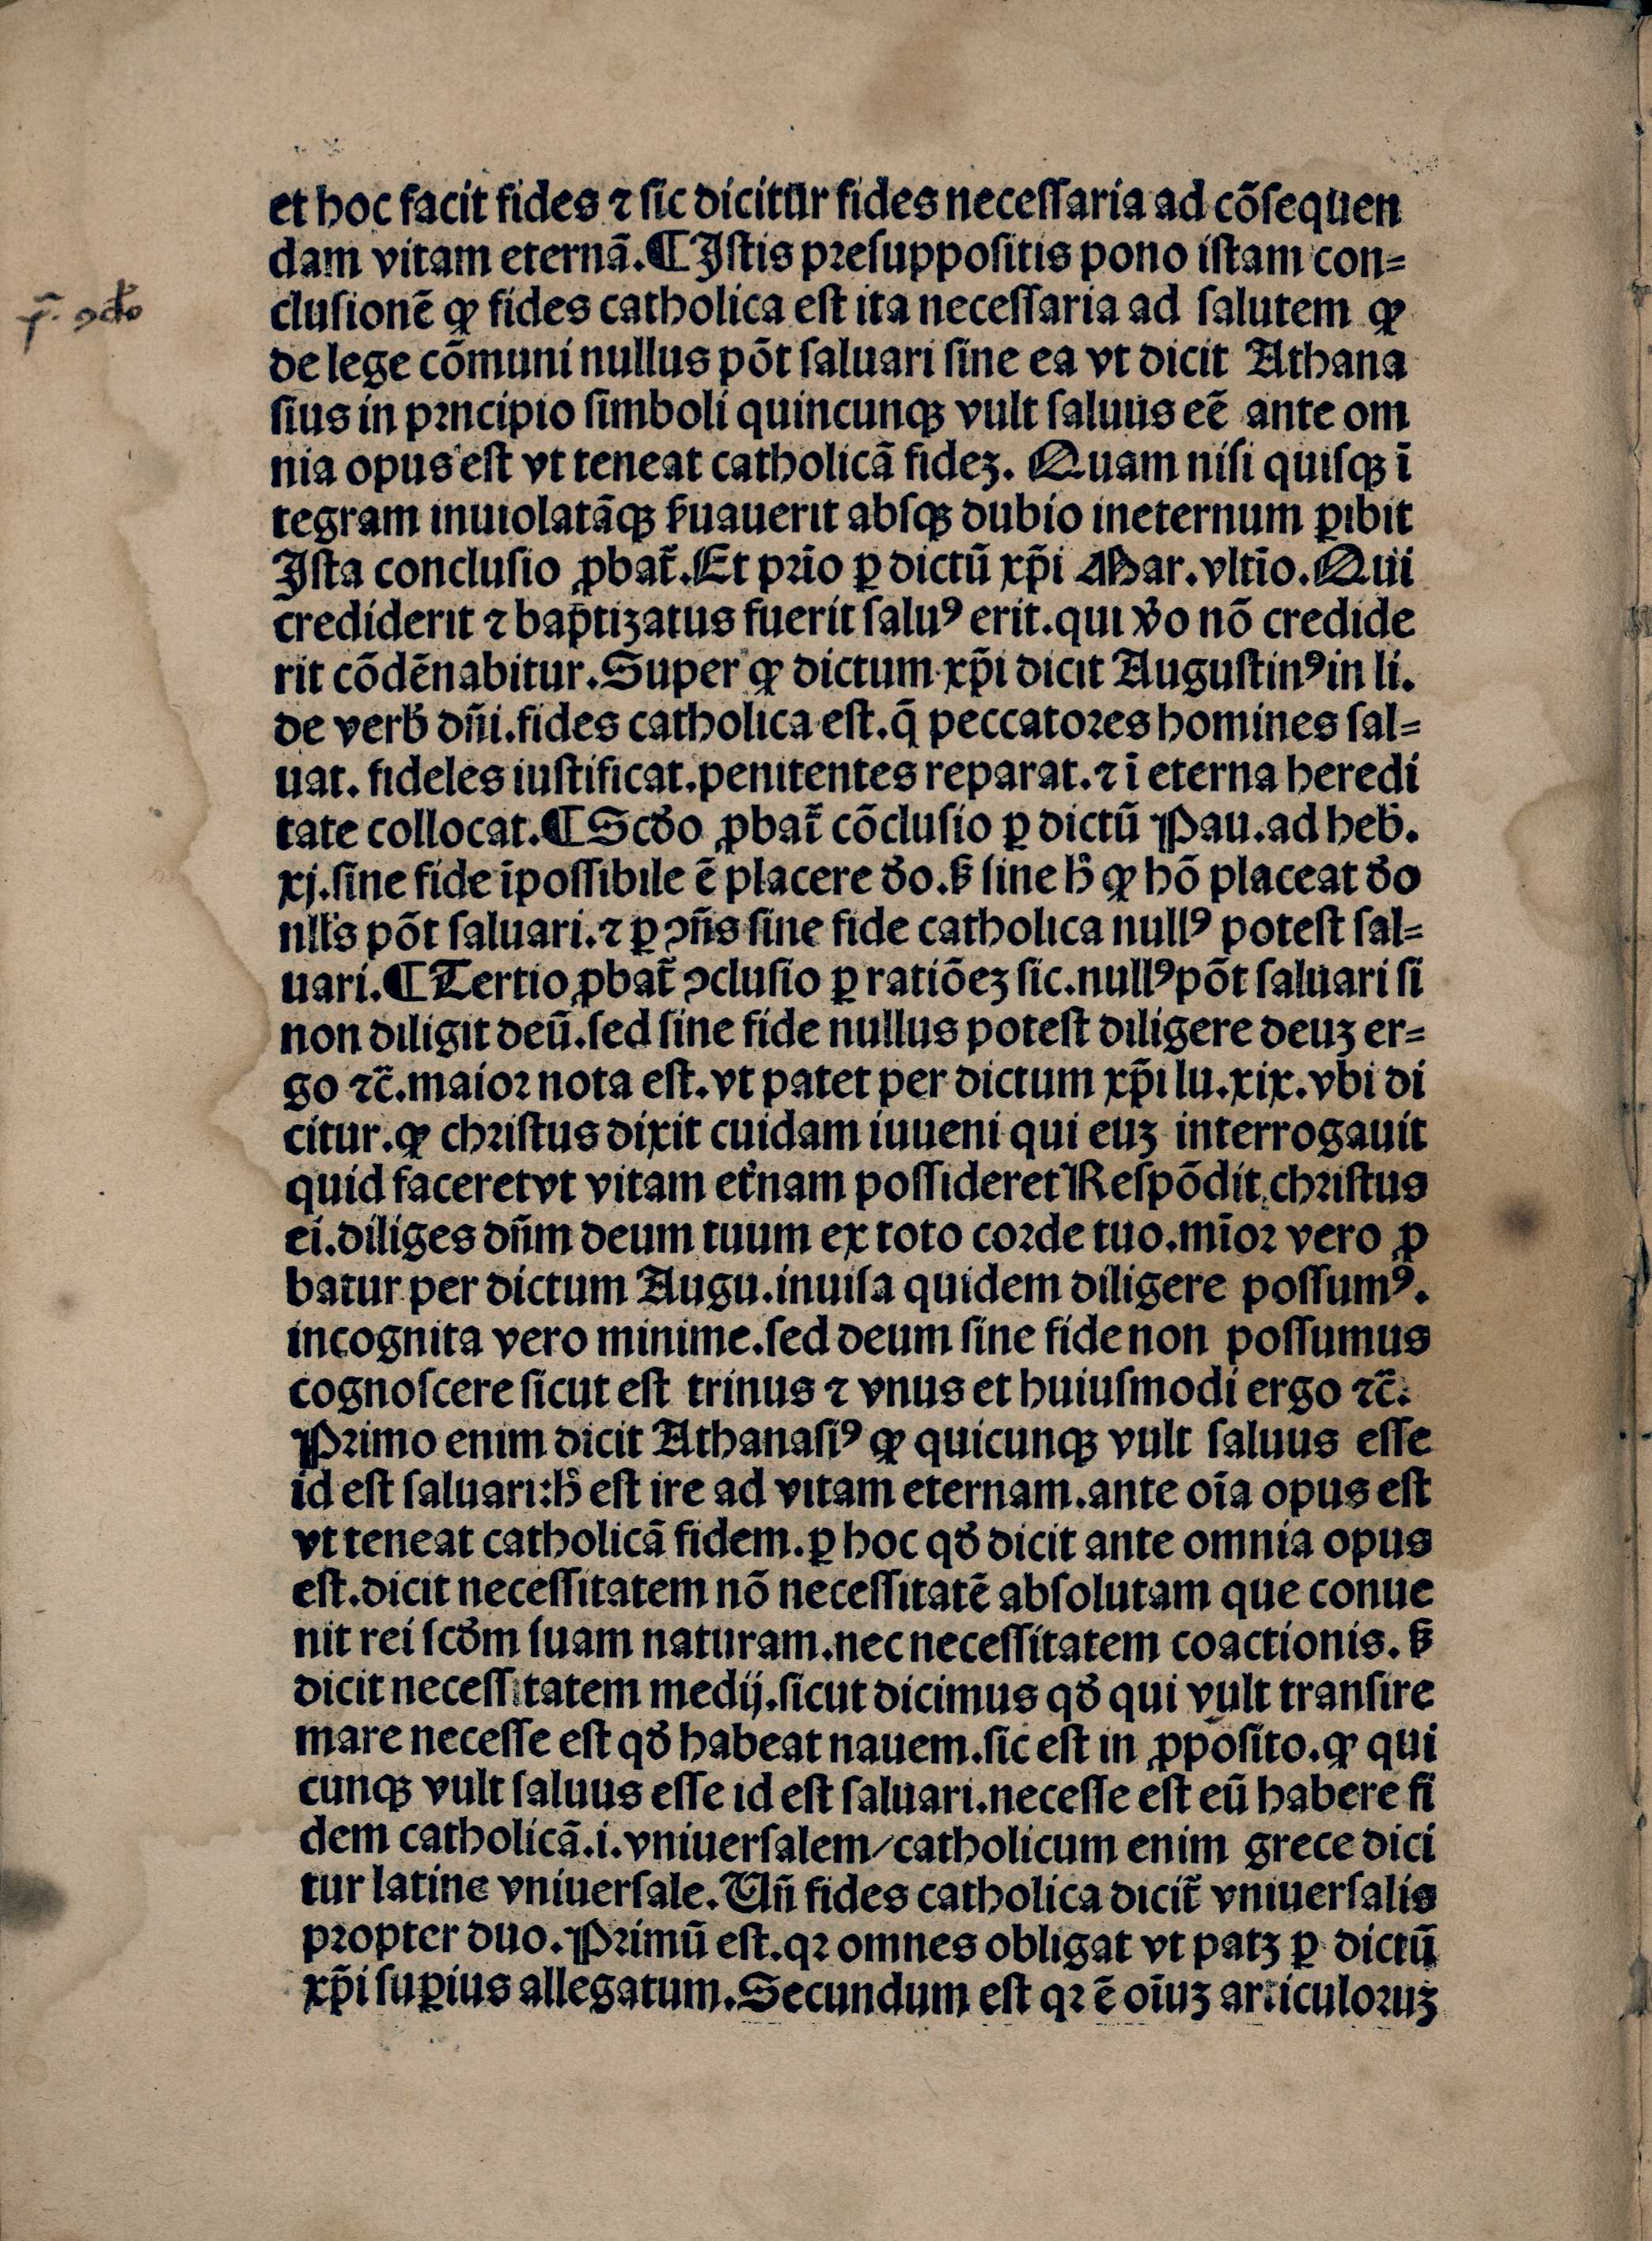 et hoc facit fides ⁊ ſic dicitur fides neceſſaria ad cõſequen
dam vitam eternã.¶Iſtis preſuppoſitis pono iſtam con=
cluſionẽ ꝙ fides catholica eſt ita neceſſaria ad ſalutem ꝙ
de lege cõmuni nullus põt ſaluari ſine ea vt dicit Athana
ſius in prncipio ſimboli quincunqꝫ vult ſaluus eẽ ante om
nia opus eſt vt teneat catholicã fideꝫ. Quam niſi quiſqꝫ ĩ
tegram inuiolatãqꝫ ẜuauerit abſqꝫ dubio ineternum ꝑibit
Iſta concluſio ꝓbat̃.Et prĩo ꝑ dictũ xp̃i Mar.vltĩo.Qui
crediderit ⁊ baptizatus fuerit ſaluꝰ erit.qui v̉o nõ credide
rit cõdẽnabitur.Super ꝙ dictum xp̃i dicit Auguſtinꝰ in li.
de verb̉ dñi.fides catholica eſt.q̃ peccatores homines ſal=
uat. fideles iuſtificat.penitentes reparat.⁊ ĩ eterna heredi
tate collocat.¶Scd̉o ꝓbat̃ cõcluſio ꝑ dictũ Pau.ad heb̉.
xj.ſine fide ĩpoſſibile ẽ placere d̉o.ẜ ſine h̉ ꝙ hõ placeat d̉o
nll̉s põt ſaluari.⁊ ꝑ ↄñs ſine fide catholica nullꝰ poteſt ſal=
uari.¶Tertio ꝓbat̃ ↄcluſio ꝑ ratiõeꝫ ſic.nullꝰ põt ſaluari ſi
non diligit deũ.ſed ſine fide nullus poteſt diligere deuꝫ er=
go ⁊c̃.maior nota eſt.vt patet per dictum xp̃i lu.xix.vbi di
citur.ꝙ chriſtus dixit cuidam iuueni qui euꝫ interrogauit
quid faceret vt vitam et̉nam poſſideret Reſpõdit chriſtus
ei.diliges dñm deum tuum ex toto corde tuo.mĩor vero ꝓ
batur per dictum Augu.inuiſa quidem diligere poſſumꝰ.
incognita vero minime.ſed deum ſine fide non poſſumus
cognoſcere ſicut eſt trinus ⁊ vnus et huiuſmodi ergo ⁊c̃.
Primo enim dicit Athanaſiꝰ ꝙ quicunqꝫ vult ſaluus eſſe
id eſt ſaluari:h̉ eſt ire ad vitam eternam.ante oĩa opus eſt
vt teneat catholicã fidem.ꝑ hoc qd̉ dicit ante omnia opus
eſt.dicit neceſſitatem nõ neceſſitatẽ abſolutam que conue
nit rei ſcd̉m ſuam naturam.nec neceſſitatem coactionis.ẜ
dicit neceſſitatem medij.ſicut dicimus qd̉ qui vult tranſire
mare neceſſe eſt qd̉ habeat nauem.ſic eſt in ꝓpoſito.ꝙ qui
cunqꝫ vult ſaluus eſſe id eſt ſaluari.neceſſe eſt eũ habere fi
dem catholicã.i.vniuerſalem/catholicum enim grece dici
tur latine vniuerſale.Vñ fides catholica dicit̃ vniuerſalis
propter duo.Primũ eſt.qꝛ omnes obligat vt patꝫ ꝑ dictũ
xp̃i ſuꝑius allegatum.Secundum eſt qꝛ ẽ oĩuꝫ articuloruꝫ